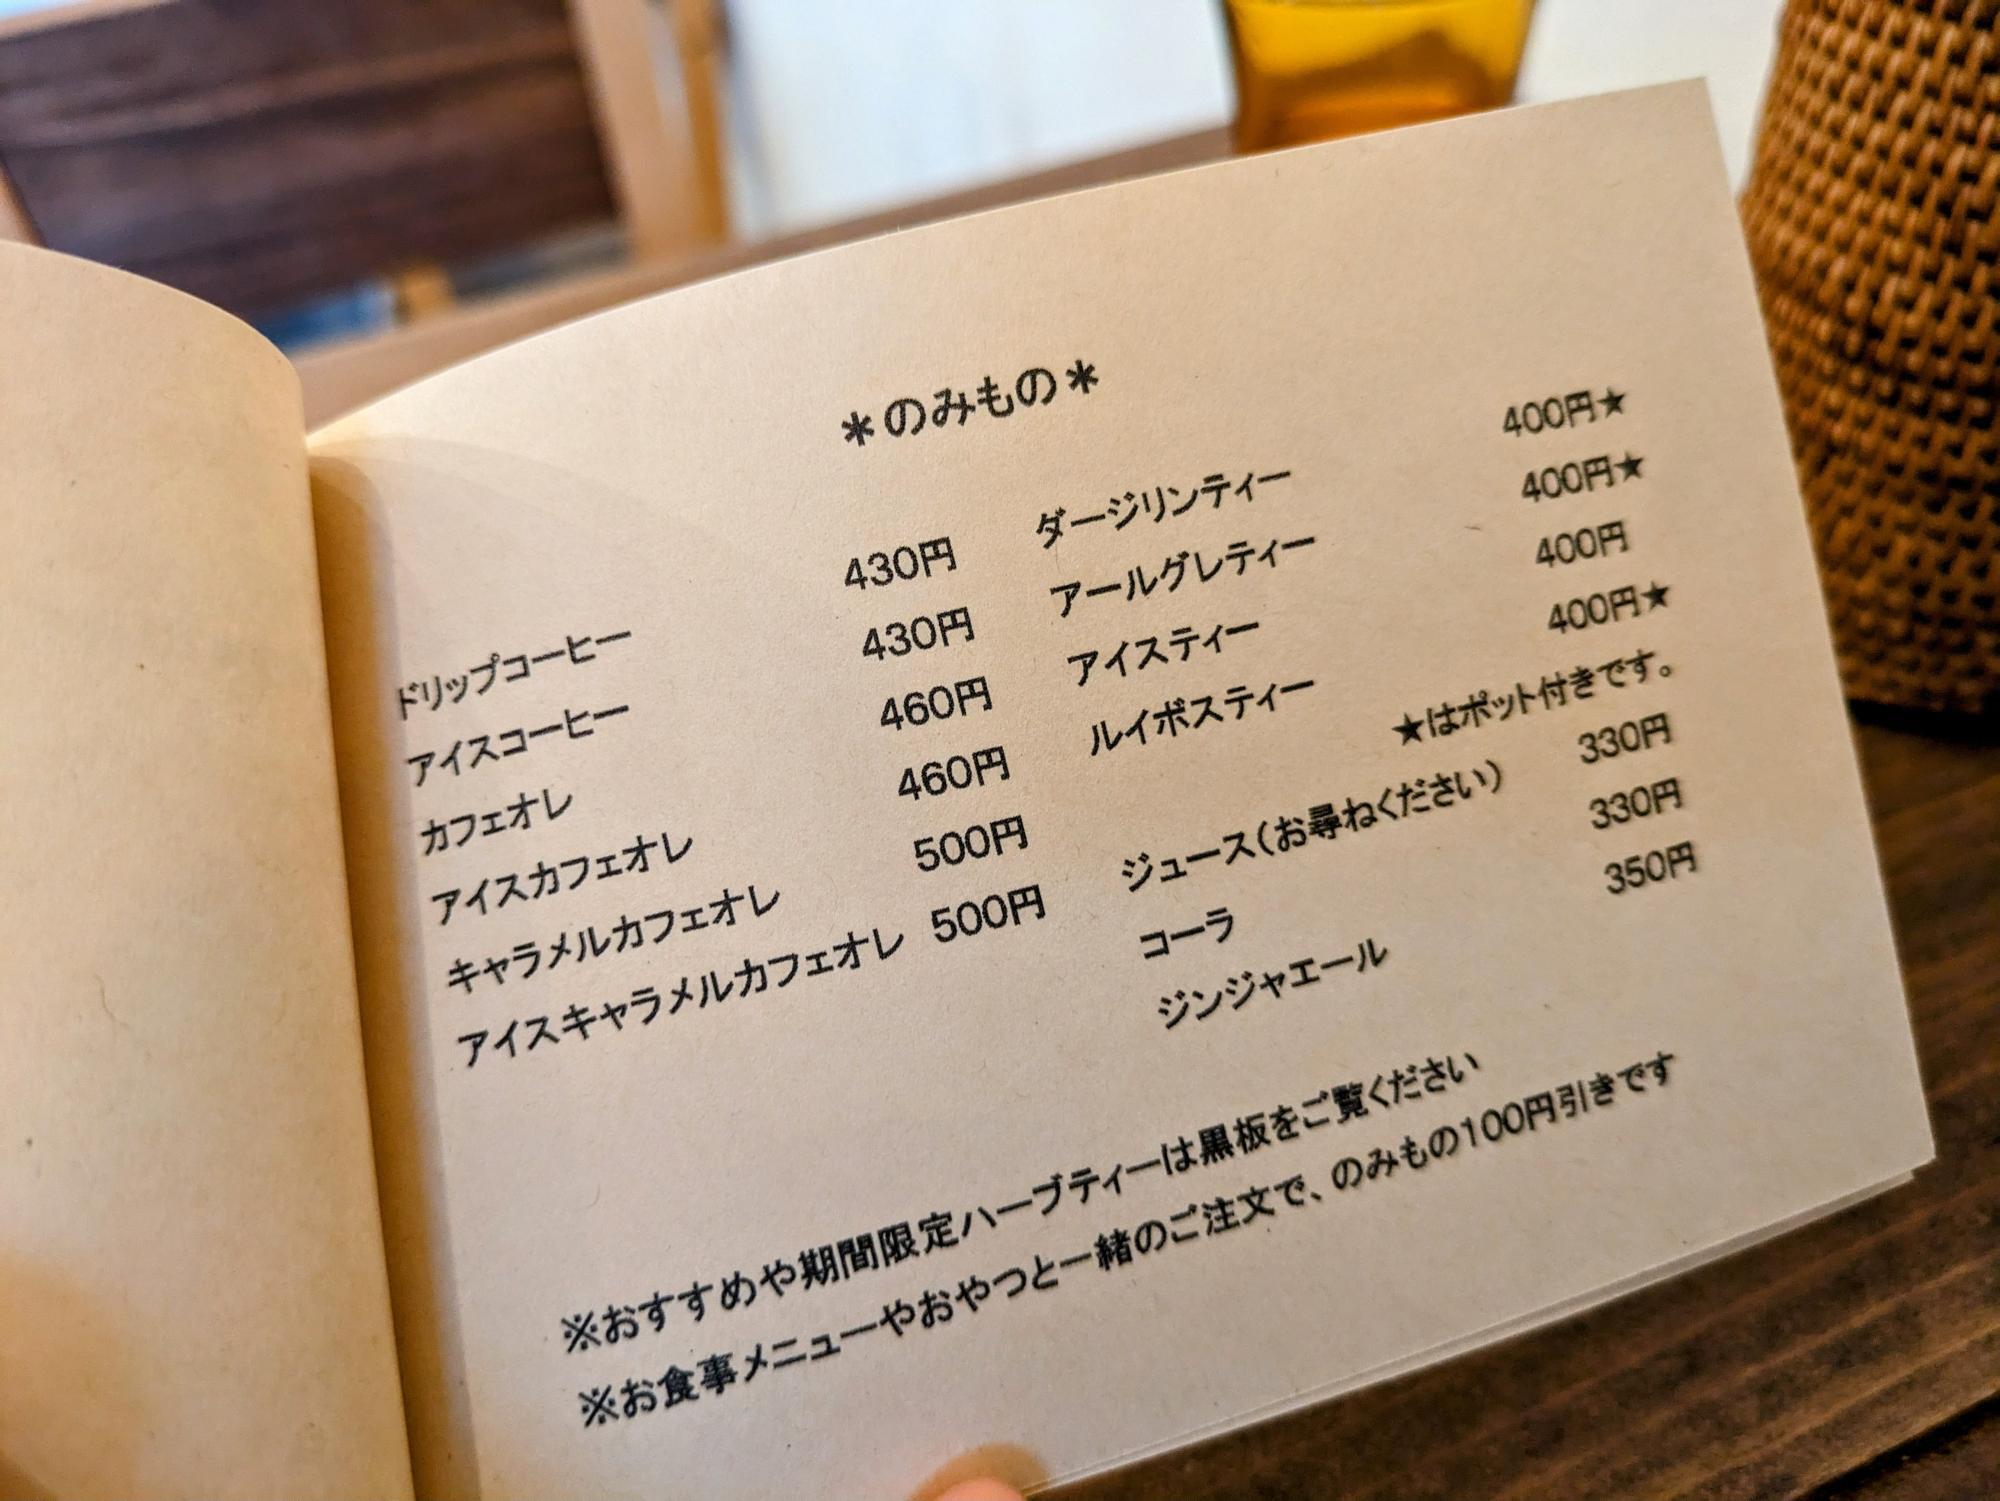 ＊のみもの＊
ドリップコーヒー 430円
アイスコーヒー 430円
カフェオレ 460円
アイスカフェオレ 460円
キャラメルカフェオレ 500円
アイスキャラメルカフェオレ 500円
ダージリンティー 400円★
アールグレティー 400円★
アイスティー 400円
ルイボスティー 400円★
★はポット付きです。
ジュース（お尋ねください） 330円
コーラ 330円
ジンジャエール 350円
※おすすめや期間限定ハーブティーは黒板をご覧ください
※お食事メニューやおやつと一緒のご注文で、のみもの100円引きです